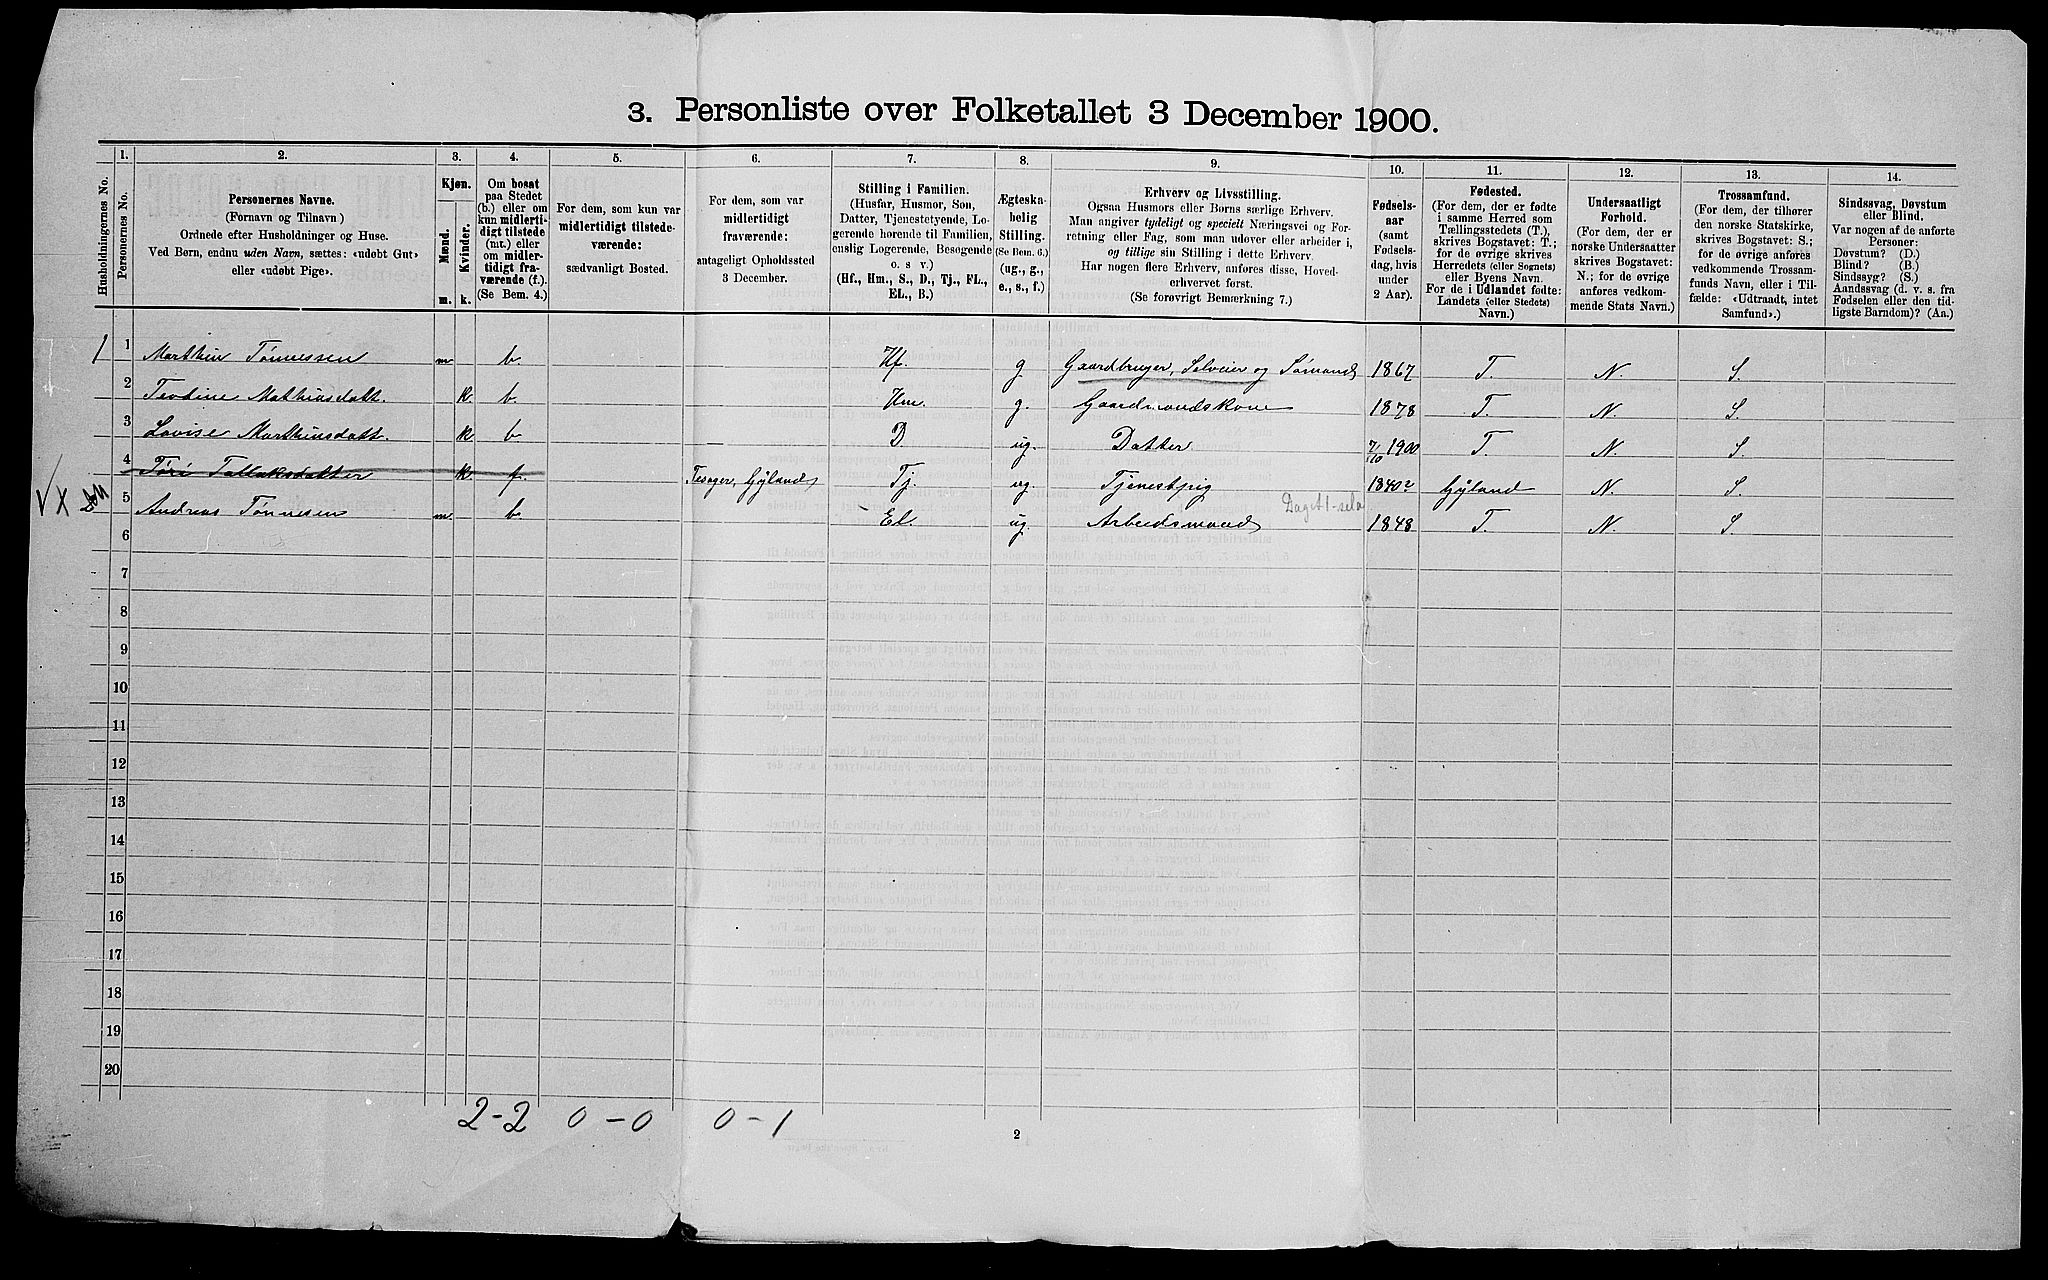 3. Personliste over Folketallet 3 December 1900.
Husholdningernes No.
1. 2. 3. 4. 5. 6. 7. 8. 9. 10. 11. 12. 13. 14.
Personernes No.
Personernes Navne.
(Fornavn og Tilnavn)
Ordnede efter Husholdninger og Huse.
Ved Børn, endnu uden Navn, sættes: «udøbt Gut»
eller «udøbt Pige».
Kjøn.
Mænd.
Kvinder.
m. k.
Om bosat
paa Stedet
(b.) eller om
kun midlerti-
digt tilstede
(mt.) eller
om midler-
tidigt fra-
værende (f.)
(Se Bem. 4.)
For dem, som kun var
midlertidigt tilstede-
værende:
sædvanligt Bosted.
For dem, som var
midlertidigt
fraværende:
antageligt Opholdssted
3 December.
Stilling i Familien.
(Husfar, Husmor, Søn,
Datter, Tjenestetyende, Lo-
gerende hørende til Familien,
enslig Logerende, Besøgende
o. s v.)
(Hf., Hm., S., D., Tj., FL.,
EL., B.)
Ægteska-
belig
Stilling.
(Se Bem. 6.)
(ug., g.,
e., s., f.)
Erhverv og Livsstilling.
Ogsaa Husmors eller Børns særlige Erhverv.
Man angiver tydeligt og specielt Næringsvei og For-
retning eller Fag, som man udøver eller arbeider i,
og tillige sin Stilling i dette Erhverv.
Har nogen flere Erhverv, anføres disse, Hoved-
erhvervet først.
(Se forøvrigt Bemærkning 7.)
Fødsels-
aar
(samt
Fødsels-
dag, hvis
under
2 Aar).
Fødested.
(For dem, der er fødte
i samme Herred som
Tællingsstedets (T.),
skrives Bogstavet: T.;
for de øvrige skrives
Herredets (eller Sognets)
eller Byens Navn.
For de i Udlandet fødte:
Landets (eller Stedets)
Navn.)
Undersaatligt
Forhold.
(For dem, der er
norske Undersaatter
Bogstavet:
N.; for de øvrige
anføres vedkom-
mende Stats Navn.)
Trossamfund.
(For dem, der tilhører
den norske Statskirke,
skrives Bogstavet: S.;
for de øvrige anføres
vedkommende Trossam-
funds Navn, eller i Til-
fælde: «Udtraadt, intet
Samfund».)
Sindssvag, Døvstum
eller Blind.
Var nogen af de anførte
Personer:
Døvstum? (D.)
Blind? (B.)
Sindssyg? (S.)
Aandssvag (d. v. s. fra
Fødselen eller den tid-
ligste Barndom)? (Aa.)
1 1 Marthin Tønnessen m. b. Hf. g. Gaardbruger, Selveier og Sømand 1867 T. N. S.
2 Teodine Mathiasdatt. k. b. Hm. g. Gaardmandskone 1878 T. N. S.
3 Lovise Marthinsdatt. k b. D. ug. Datter 7/10 1900 T. N. S.
4 Tøri Tallaksdatter k. f. Gyland Tj. ug. Tjenestpig 1840? Gyland N. S.
X 5 Andreas Tønnesen m. b. El. ug. Arbeidsmand 1848 T. N. S.
6
7
8
9
10
11
12
13
14
15
16
17
18
19
20
2-2 0-0 0-1
2